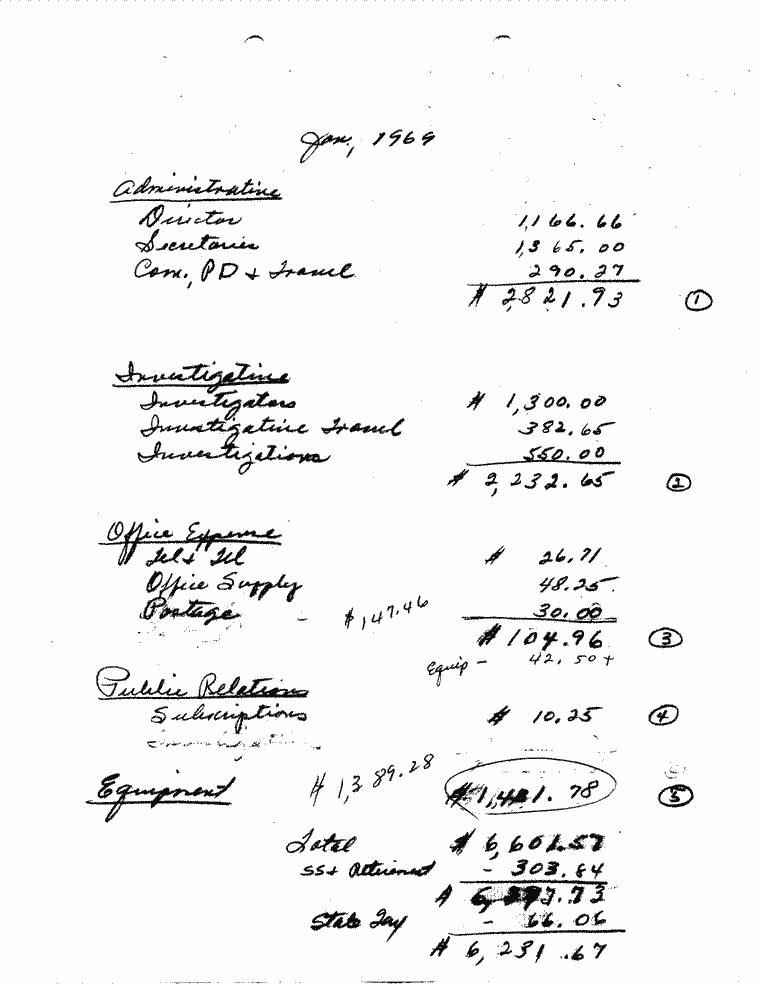 Jan, 1969
Administrative
Director 1,166.66
Secretaries 1,365.00
Com., PD & Travel 290.27
$ 2,821.93 ①
Investigative
Investigators $ 1,300.00
Investigative Travel 382.65
Investigations 550.00
$ 2,232.65 ②
Office Expense
Tel & Tel $ 26.71
Office Supply 48.25
Postage - $147.46 30.00
$104.96 ③
Equip - 42.50+
Public Relations
Subscriptions $ 10.25 ④
Equipment $1,389.28 $1,431.78 ⑤
Total $ 6,601.57
SS & Retirement - 303.84
$ 6,297.73
State Tax - 66.06
$ 6,231.67